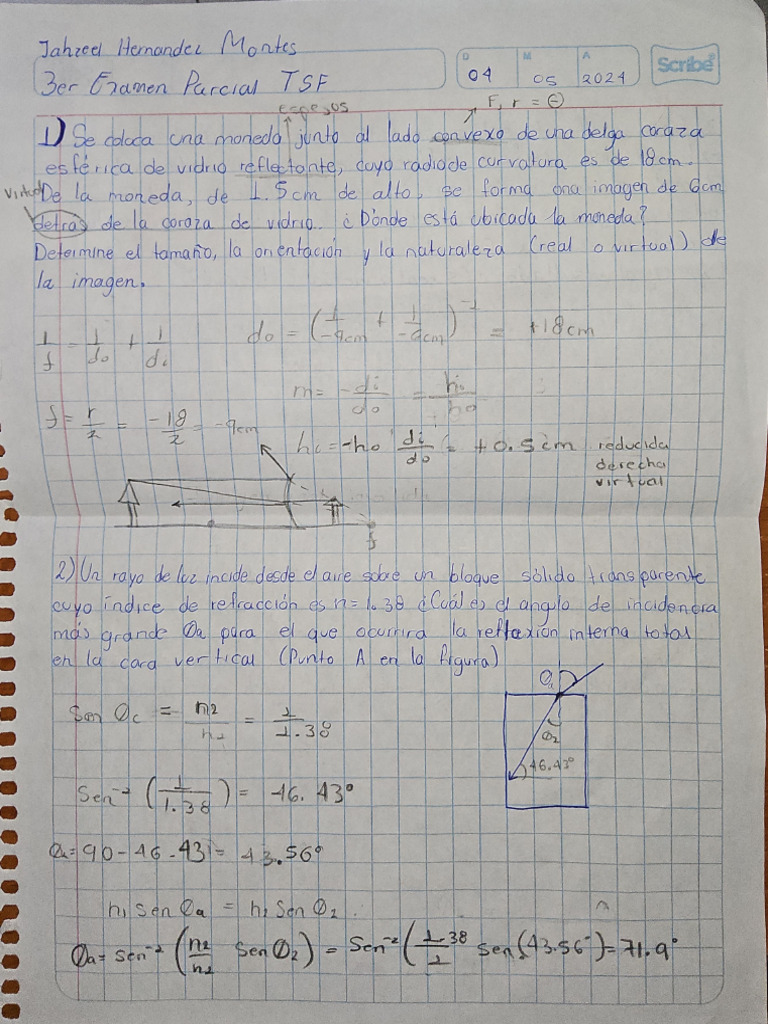 Jahzeel Hernandez Montes
D M A
04 05 2024
Scribe
3er Examen Parcial TSF
espejos
F, r = ⊖
1) Se coloca una moneda junto al lado convexo de una delga coraza
esférica de vidrio reflectante, cuyo radio de curvatura es de 18cm.
Virtual
De la moneda, de 1.5cm de alto, se forma una imagen de 6cm
detras de la coraza de vidrio. ¿Dónde está ubicada la moneda?
Determine el tamaño, la orientación y la naturaleza (real o virtual) de
la imagen.
1/f = 1/do + 1/di
do = (1/-9cm + 1/-6cm)^-1 = +18cm
m = -di/do = hi/ho
f = r/2 = -18/2 = -9cm
hi = -ho di/do = +0.5cm reducida
derecha
virtual
f
2) Un rayo de luz incide desde el aire sobre un bloque sólido transparente
cuyo índice de refracción es n=1.38 ¿Cuál es el angulo de incidencia
más grande Θa para el que ocurrira la reflexión interna total
en la cara vertical (Punto A en la figura)
Sen Θc = n2/n1 = 1/1.38
Θ2
46.43°
Sen^-1 (1/1.38) = 46.43°
= 90-46.43 = 43.56°
n1 sen Θa = n2 Sen Θ2
Θa = Sen^-1 (n2/n1 Sen Θ2) = Sen^-1 (1.38/1 Sen(43.56°) = 71.9°